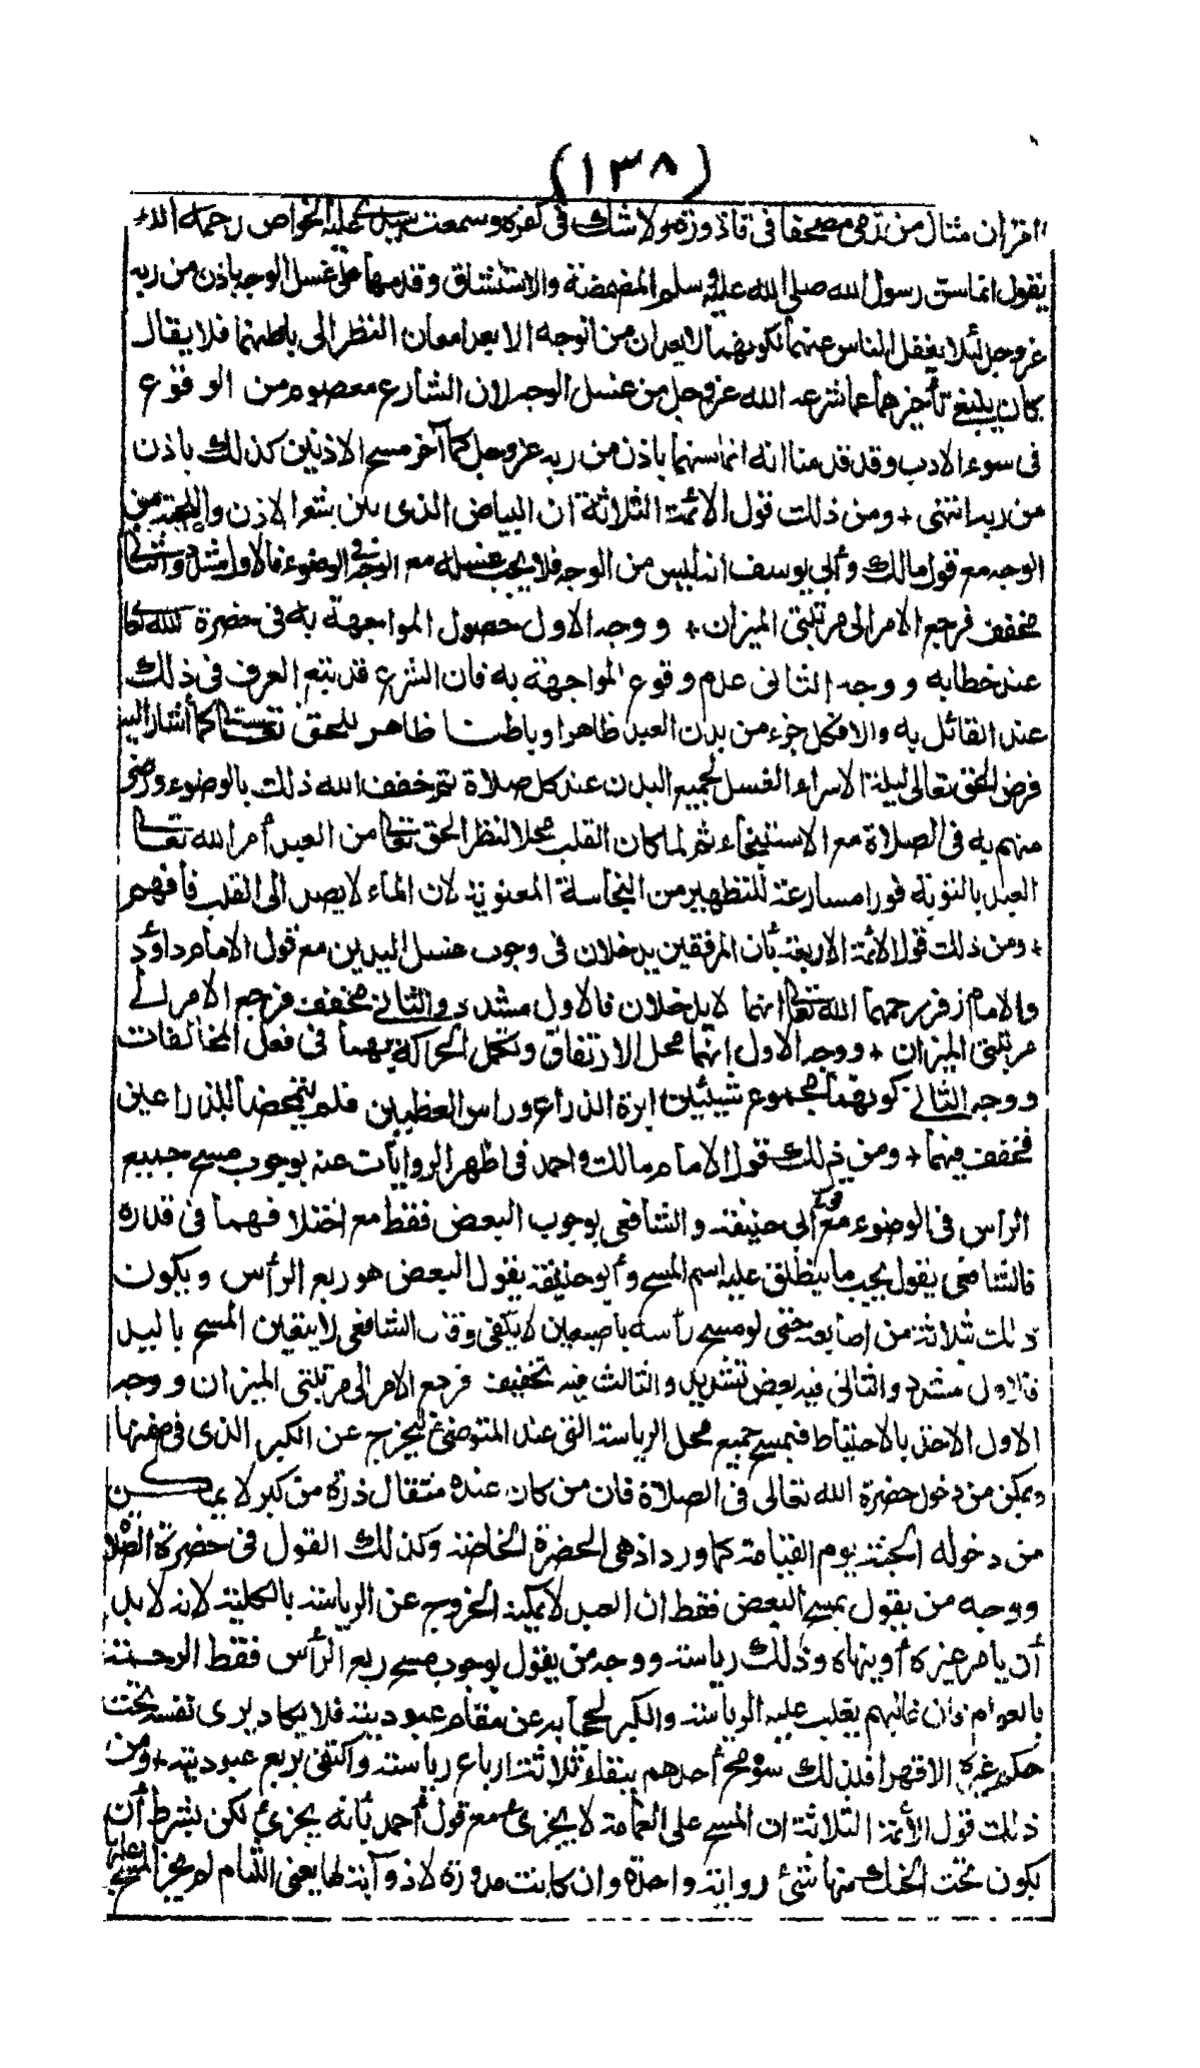 (١٣٨)
القرآن مثال من رمى مصحفا فى قاذورة ولا شك فى كفره وسمعت سيدى عليا الخواص رحمه الله
يقول انما سن رسول الله صلى الله عليه وسلم المضمضة والاستنشاق وقدمهما على غسل الوجه باذن من ربه
عزوجل لئلا يغفل الناس عنهما لكونهما لا يعدان من الوجه الا بعد امعان النظر الى باطنهما فلا يقال
كان ينبغى تأخيرهما عما شرعه الله عزوجل من غسل الوجه لان الشارع معصوم من الوقوع
فى سوء الادب وقد قدمنا انه انما سنهما باذن من ربه عزوجل كما آخر مسح الاذنين كذلك باذن
من ربه انتهى + ومن ذلك قول الائمة الثلاثة ان البياض الذى بين شعر الاذن واللحية من
الوجه مع قول مالك وأبى يوسف انه ليس من الوجه فلا يجب غسله مع الوجه فى الوضوء فالاول مشدد والثانى
مخفف فرجع الامر الى مرتبتى الميزان + ووجه الاول حصول المواجهة به فى حضرة الله تعالى
عند خطابه ووجه الثانى عدم وقوع المواجهة به فان الشرع قد تبع العرف فى ذلك
عند القائل به والا فكل جزء من بدن العبد ظاهرا وباطنا ظاهر للحق تعالى كما أشار اليه
فرض الحق تعالى ليلة الاسراء الغسل لجميع البدن عند كل صلاة ثم خفف الله ذلك بالوضوء ورضى
منهم به فى الصلاة مع الاستنجاء ثم لما كان القلب محلا لنظر الحق تعالى من العبد أمر الله تعالى
العبد بالتوبة فورا مسارعة للتطهير من النجاسة المعنوية لان الماء لا يصل الى القلب فافهم
+ ومن ذلك قول الائمة الاربعة بأن المرفقين يدخلان فى وجوب غسل اليدين مع قول الامام داؤد
والامام زفر رحمهما الله تعالى انهما لا يدخلان فالاول مشدد والثانى مخفف فرجع الامر الى
مرتبتى الميزان + ووجه الاول انهما محل الارتفاق وتكمل الحركة بهما فى فعل المخالفات
ووجه الثانى كونهما مجموع شيئين ابرة الذراع وراس العظمين فلم يتمحضا للذراعين
فخفف فيهما + ومن ذلك قول الامام مالك واحمد فى اظهر الروايات عنه بوجوب مسح جميع
الرأس فى الوضوء مع قول أبى حنيفة والشافعى بوجوب البعض فقط مع اختلافهما فى قدره
فالشافعى يقول يجب ما ينطلق عليه اسم المسح وأبو حنيفة يقول البعض هو ربع الرأس ويكون
ذلك ثلاثة من اصابعه حتى لو مسح رأسه باصبعين لا يكفى وقال الشافعى لا يتعين المسح باليد
فالاول مشدد والثانى فيه بعض تشديد والثالث فيه تخفيف فرجع الامر الى مرتبتى الميزان ووجه
الاول الاخذ بالاحتياط فيمسح جميع محل الرياسة التى عند المتوضئ ليخرج عن الكبر الذى فى ضمنها
ويمكن من دخول حضرة الله تعالى فى الصلاة فان من كان عنده مثقال ذرة من كبر لا يمكن
من دخوله الجنة يوم القيامة كما ورد اذ هى الحضرة الخاصة وكذلك القول فى حضرة الصلاة
ووجه من يقول بمسح البعض فقط ان العبد لا يمكنه الخروج عن الرياسة بالكلية لانه لا بد
أن يامر غيره أو ينهاه وذلك رياسة ووجه من يقول بوجوب مسح ربع الرأس فقط الرحمة
بالعوام فان غالبهم يغلب عليه الرياسة والكبر لحجابه عن مقام عبوديته فلا يكاد يرى نفسه تحت
حكم غيره الا قهرا فلذلك سومح أحدهم ببقاء ثلاثة ارباع رياسته واكتفى بربع عبوديته + ومن
ذلك قول الأئمة الثلاثة ان المسح على العمامة لا يجزئ مع قول أحمد بأنه يجزئ لكن بشرط أن
يكون تحت الحنك منها شئ رواية واحدة وان كانت مدورة لا ذوآبة لها يعنى اللثام لم يجز المسح عليها